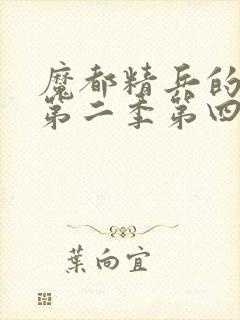 魔都精兵的
第二季第四
葉向宜